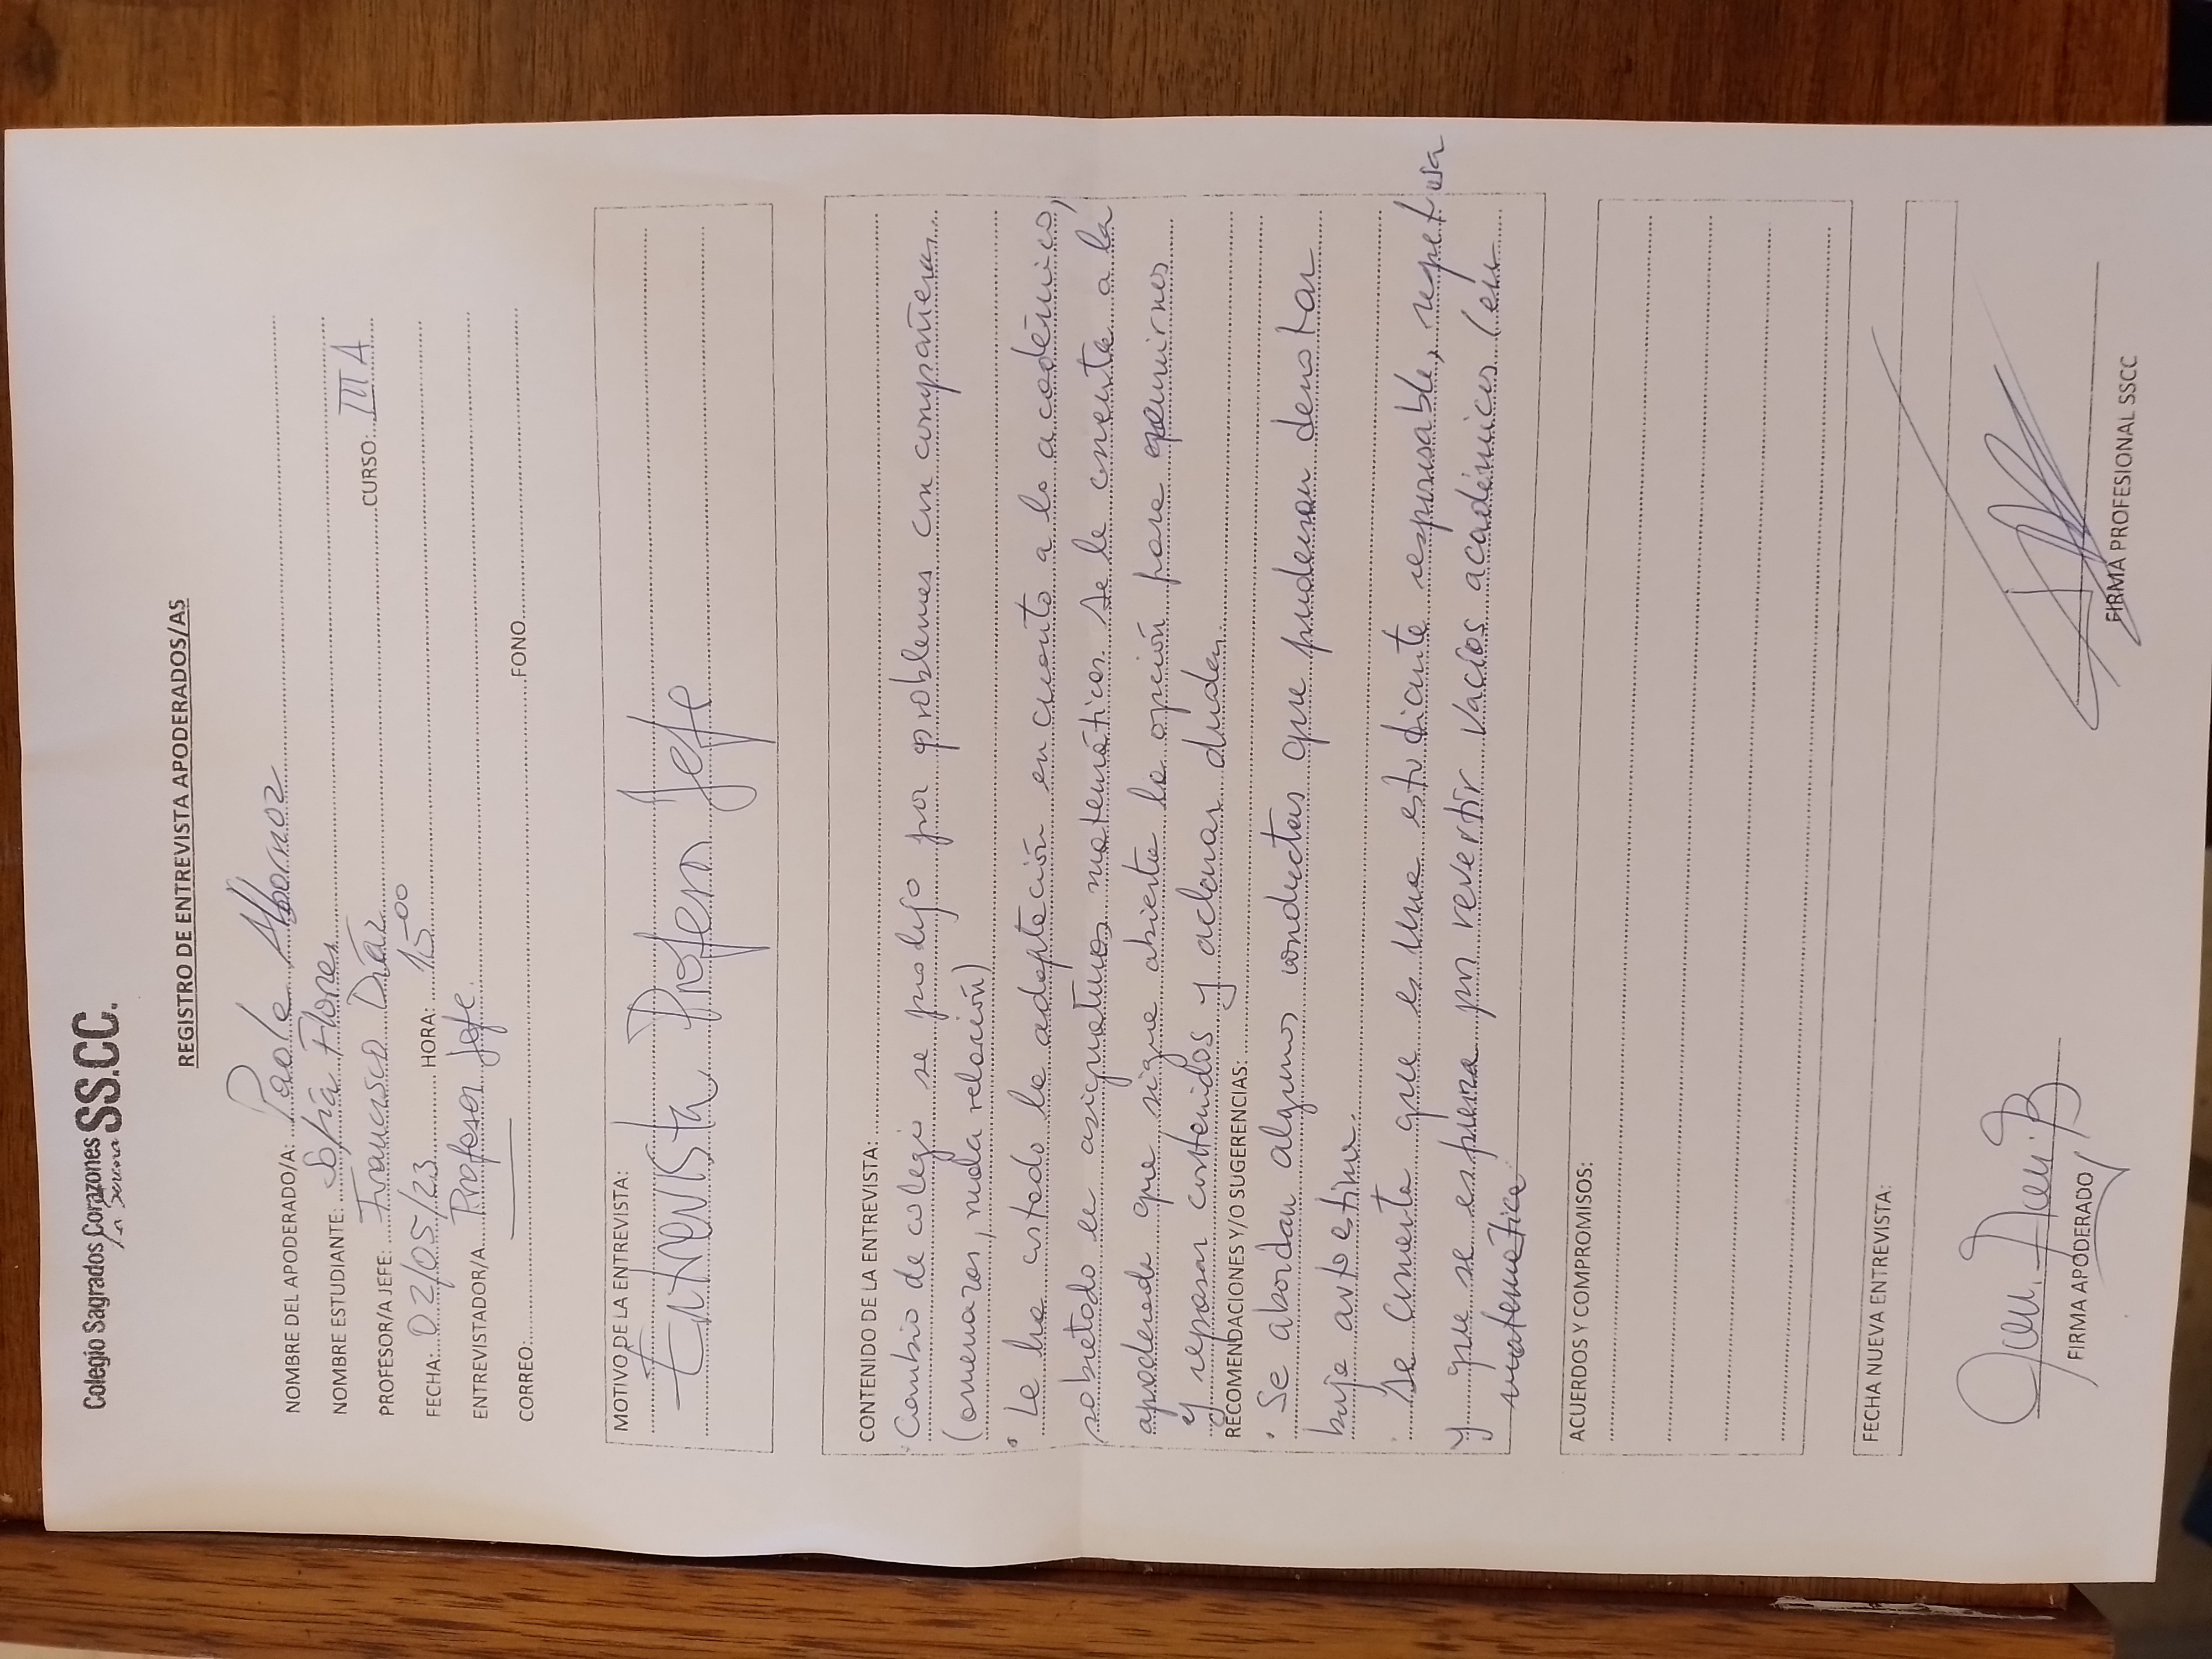 Colegio Sagrados Corazones SS.CC.
La Serena
REGISTRO DE ENTREVISTA APODERADOS/AS
NOMBRE DEL APODERADO/A: Paola Albornoz
NOMBRE ESTUDIANTE: Sofía Flores
PROFESOR/A JEFE: Francisco Díaz CURSO: III A
FECHA: 02/05/23 HORA: 15:00
ENTREVISTADOR/A Profesor Jefe.
CORREO: FONO
MOTIVO DE LA ENTREVISTA:
Entrevista Profesor Jefe
CONTENIDO DE LA ENTREVISTA:
· Cambio de colegio se produjo por problemas con compañeras
(amenazas, mala relación)
· Le ha costado la adaptación en cuanto a lo académico,
sobretodo en asignaturas matemáticas. Se le comenta a la
apoderada que sigue abierta la opción para
y repasar contenidos y aclarar dudas.
RECOMENDACIONES Y/O SUGERENCIAS:
· Se abordan algunas conductas que pudieran denotar
baja autoestima.
· Se comenta que es una estudiante responsable, respetuosa
y que se espera por revertir vacíos académicos (en
matemática
ACUERDOS Y COMPROMISOS:
FECHA NUEVA ENTREVISTA:
FIRMA APODERADO
FIRMA PROFESIONAL SSCC